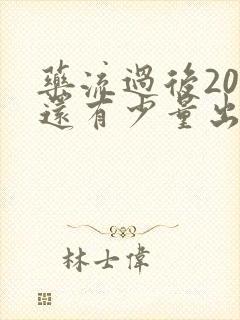 藥流過後20
還有少量出
林士偉